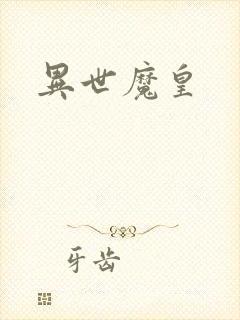 異世魔皇
牙齿